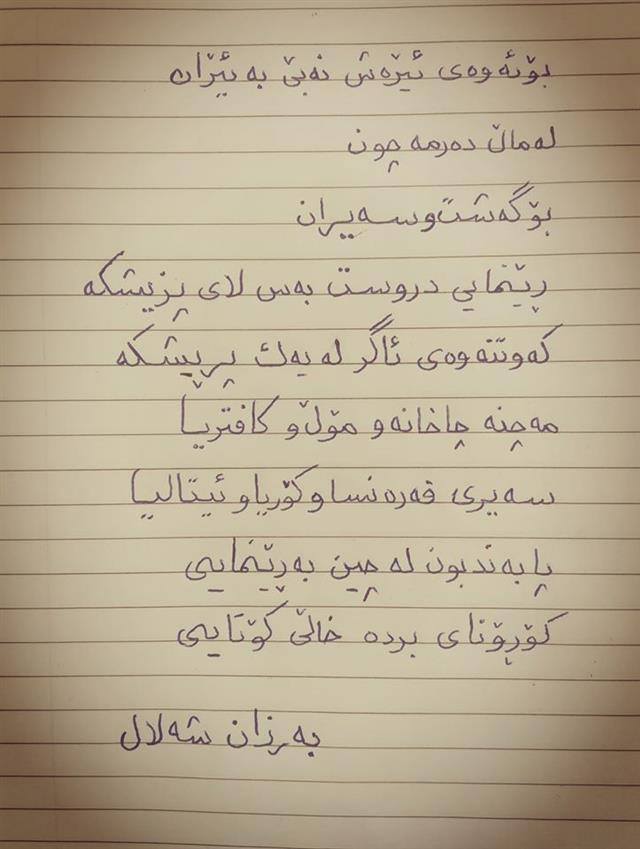 بۆئەوەی ئێرەش نەبێ بە ئێران
لەماڵ دەرمەچون
بۆگەشت وسەیران
ڕێنمایی دروست بەس لای پزیشکە
کەوتنەوەی ئاگر لە یەك پریشکە
مەچنە چاخانەو مۆڵو کافتریا
سەیری فەرەنساو کۆریاو ئیتالیا
پابەندبون لە چین بەڕێنمایی
کۆڕۆنای بردە خاڵی کۆتایی
بەرزان شەلال